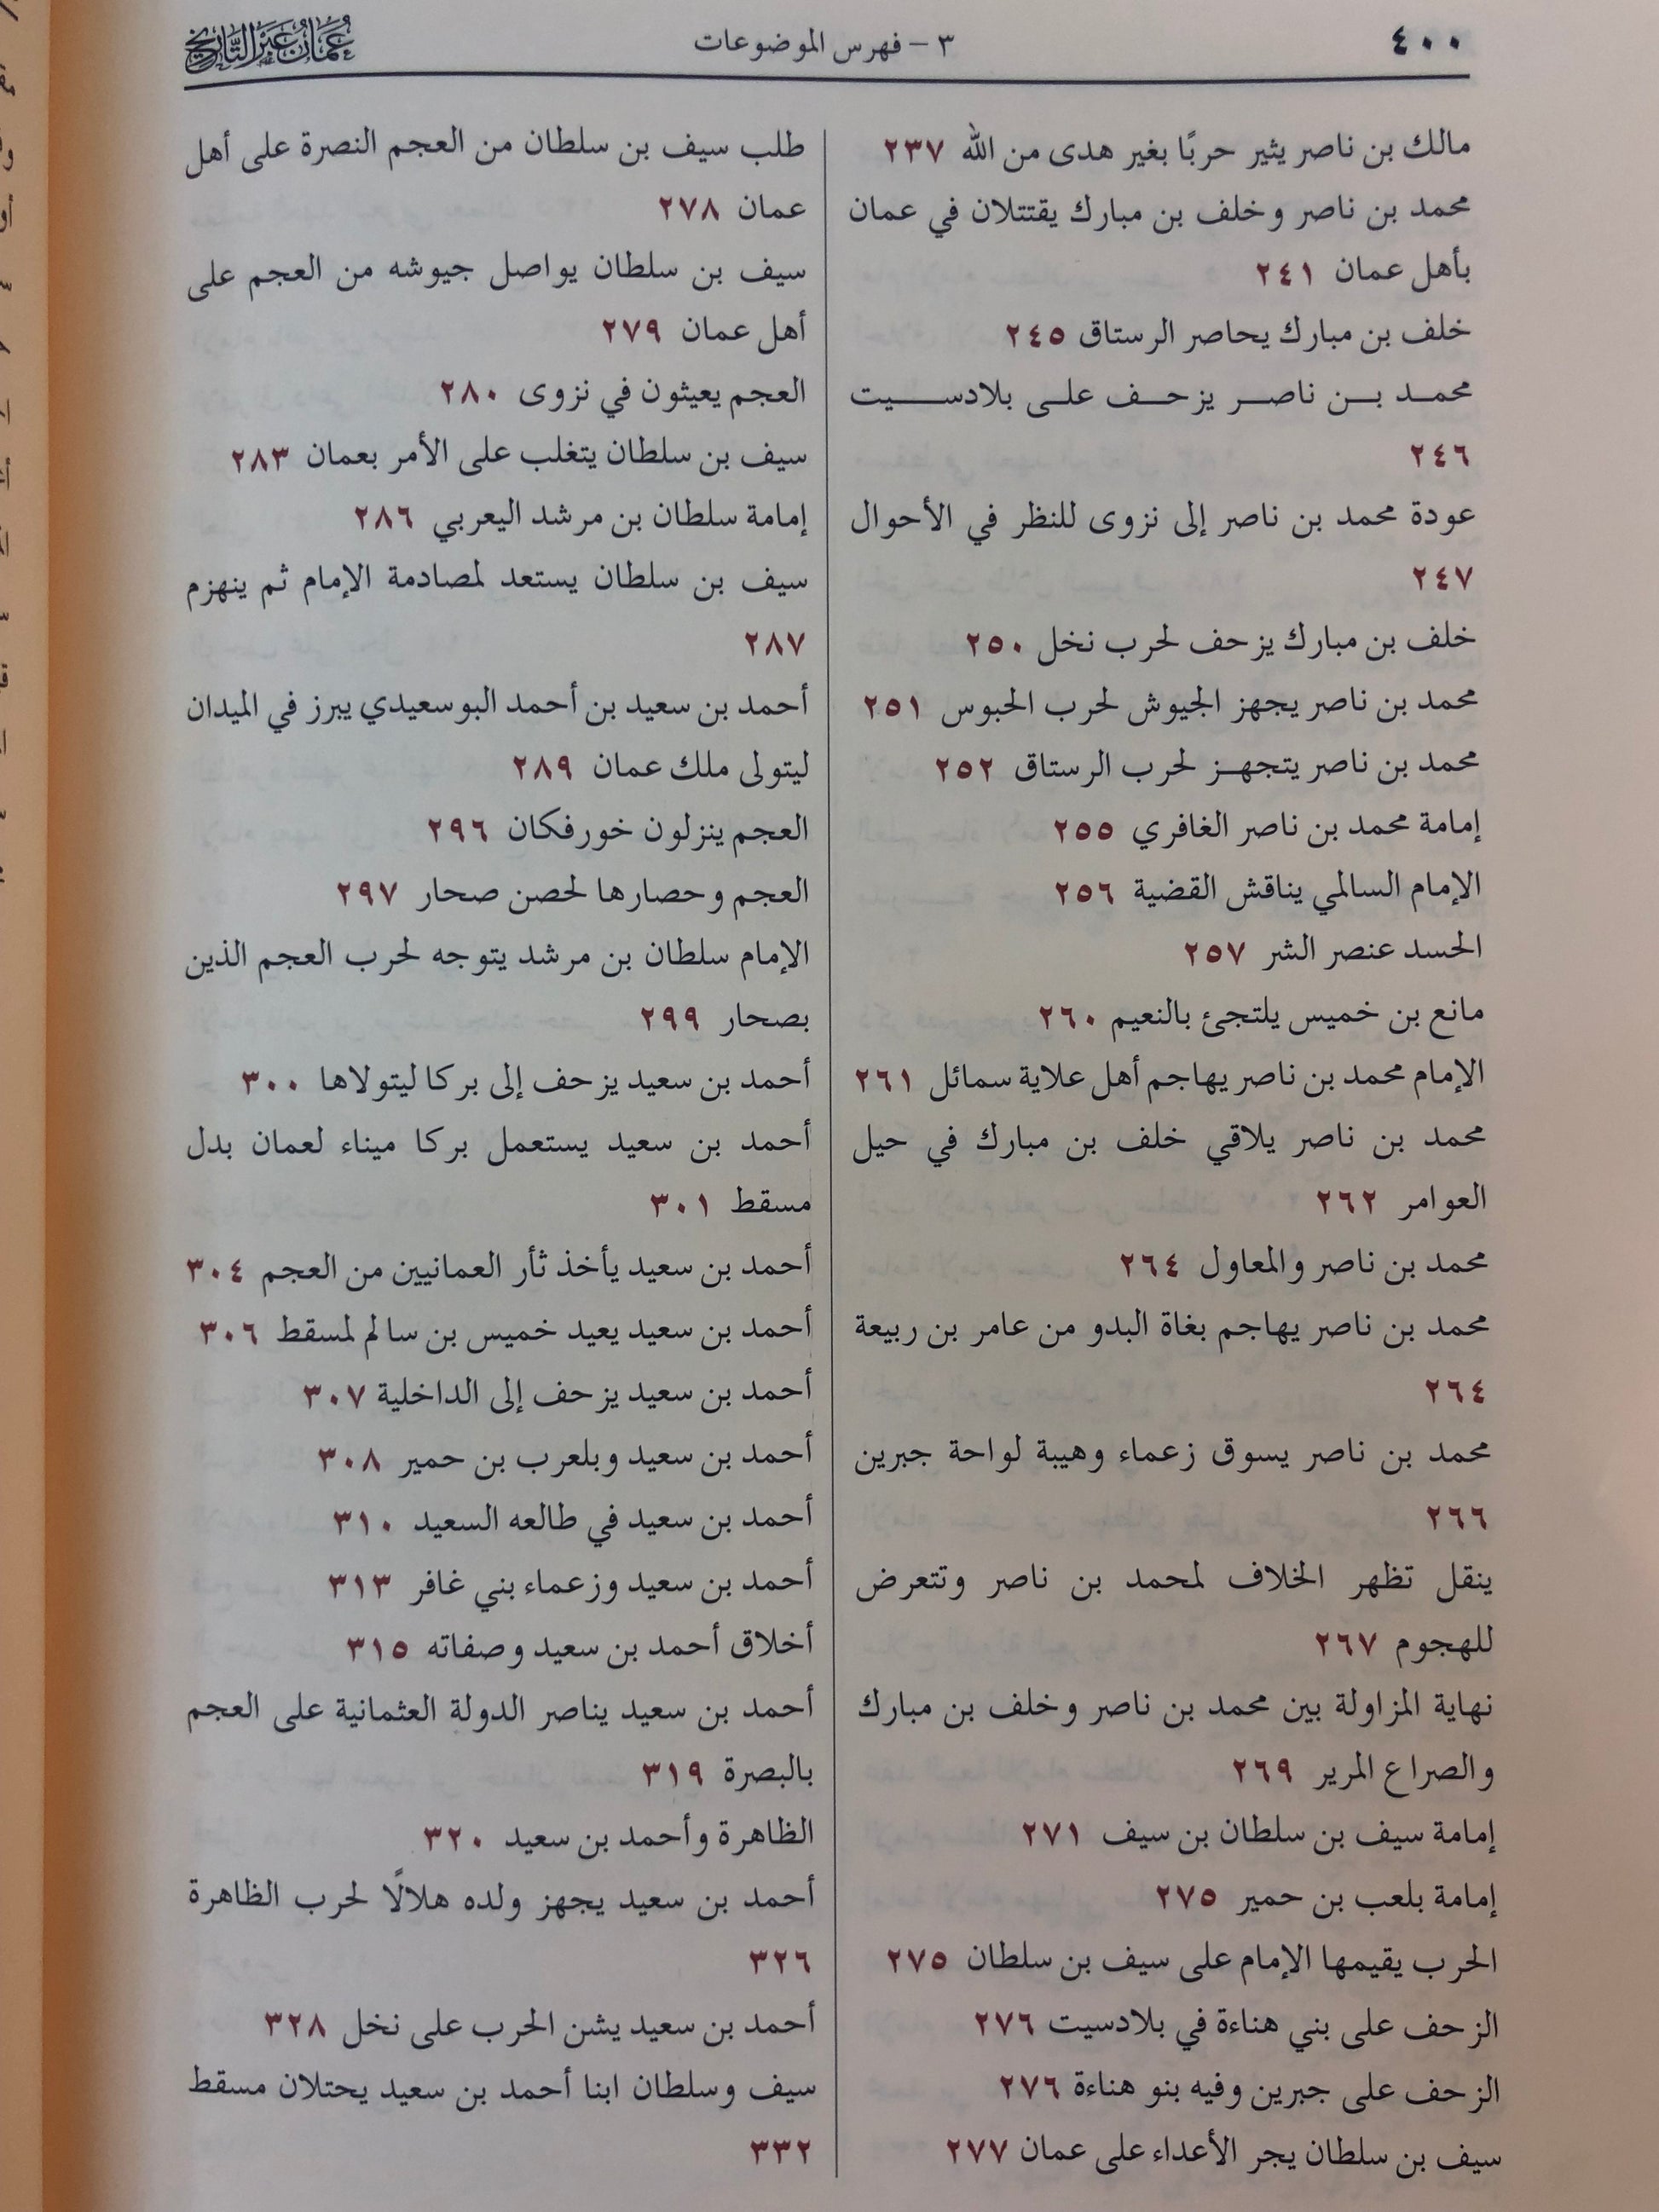 ٤٠٠
٣ – فهرس الموضوعات
عُمَان عَبْرَ التَّارِيخ
مالك بن ناصر يثير حربًا بغير هدى من الله ٢٣٧
محمد بن ناصر وخلف بن مبارك يقتتلان في عمان
بأهل عمان ٢٤١
خلف بن مبارك يحاصر الرستاق ٢٤٥
محمد بن ناصر يزحف على بلادسيت
٢٤٦
عودة محمد بن ناصر إلى نزوى للنظر في الأحوال
٢٤٧
خلف بن مبارك يزحف لحرب نخل ٢٥٠
محمد بن ناصر يجهز الجيوش لحرب الحبوس ٢٥١
محمد بن ناصر يتجهز لحرب الرستاق ٢٥٢
إمامة محمد بن ناصر الغافري ٢٥٥
الإمام السالمي يناقش القضية ٢٥٦
الحسد عنصر الشر ٢٥٧
مانع بن خميس يلتجئ بالنعيم ٢٦٠
الإمام محمد بن ناصر يهاجم أهل علاية سمائل ٢٦١
محمد بن ناصر يلاقي خلف بن مبارك في حيل
العوامر ٢٦٢
محمد بن ناصر والمعاول ٢٦٤
محمد بن ناصر يهاجم بغاة البدو من عامر بن ربيعة
٢٦٤
محمد بن ناصر يسوق زعماء وهيبة لواحة جبرين
٢٦٦
ينقل تظهر الخلاف لمحمد بن ناصر وتتعرض
للهجوم ٢٦٧
نهاية المزاولة بين محمد بن ناصر وخلف بن مبارك
والصراع المرير ٢٦٩
إمامة سيف بن سلطان بن سيف ٢٧١
إمامة بلعب بن حمير ٢٧٥
الحرب يقيمها الإمام على سيف بن سلطان ٢٧٥
الزحف على بني هناءة في بلادسيت ٢٧٦
الزحف على جبرين وفيه بنو هناءة ٢٧٦
سيف بن سلطان يجر الأعداء على عمان ٢٧٧
طلب سيف بن سلطان من العجم النصرة على أهل
عمان ٢٧٨
سيف بن سلطان يواصل جيوشه من العجم على
أهل عمان ٢٧٩
العجم يعيثون في نزوى ٢٨٠
سيف بن سلطان يتغلب على الأمر بعمان ٢٨٣
إمامة سلطان بن مرشد اليعربي ٢٨٦
سيف بن سلطان يستعد لمصادمة الإمام ثم ينهزم
٢٨٧
أحمد بن سعيد بن أحمد البوسعيدي يبرز في الميدان
ليتولى ملك عمان ٢٨٩
العجم ينزلون خورفكان ٢٩٦
العجم وحصارها لحصن صحار ٢٩٧
الإمام سلطان بن مرشد يتوجه لحرب العجم الذين
بصحار ٢٩٩
أحمد بن سعيد يزحف إلى بركا ليتولاها ٣٠٠
أحمد بن سعيد يستعمل بركا ميناء لعمان بدل
مسقط ٣٠١
أحمد بن سعيد يأخذ ثأر العمانيين من العجم ٣٠٤
أحمد بن سعيد يعيد خميس بن سالم لمسقط ٣٠٦
أحمد بن سعيد يزحف إلى الداخلية ٣٠٧
أحمد بن سعيد وبلعرب بن حمير ٣٠٨
أحمد بن سعيد في طالعه السعيد ٣١٠
أحمد بن سعيد وزعماء بني غافر ٣١٣
أخلاق أحمد بن سعيد وصفاته ٣١٥
أحمد بن سعيد يناصر الدولة العثمانية على العجم
بالبصرة ٣١٩
الظاهرة وأحمد بن سعيد ٣٢٠
أحمد بن سعيد يجهز ولده هلالًا لحرب الظاهرة
٣٢٦
أحمد بن سعيد يشن الحرب على نخل ٣٢٨
سيف وسلطان ابنا أحمد بن سعيد يحتلان مسقط
٣٣٢